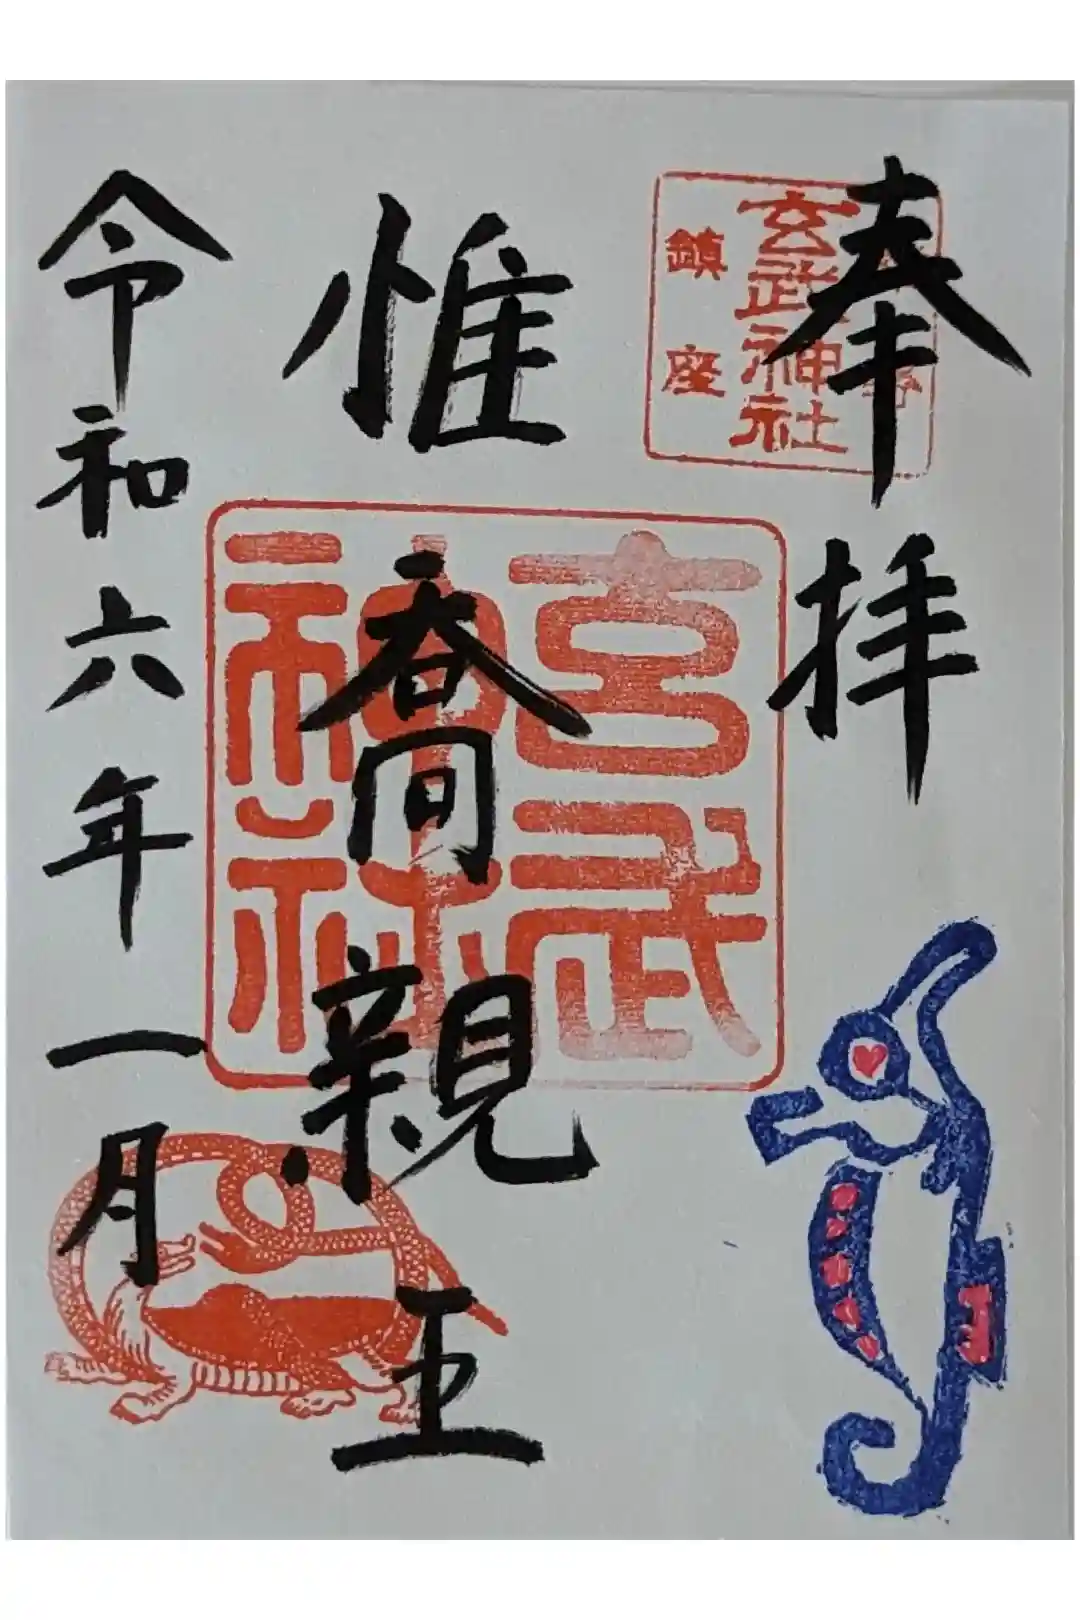 奉拝
玄武神社
鎮座
玄武神社
惟喬親王
令和六年一月